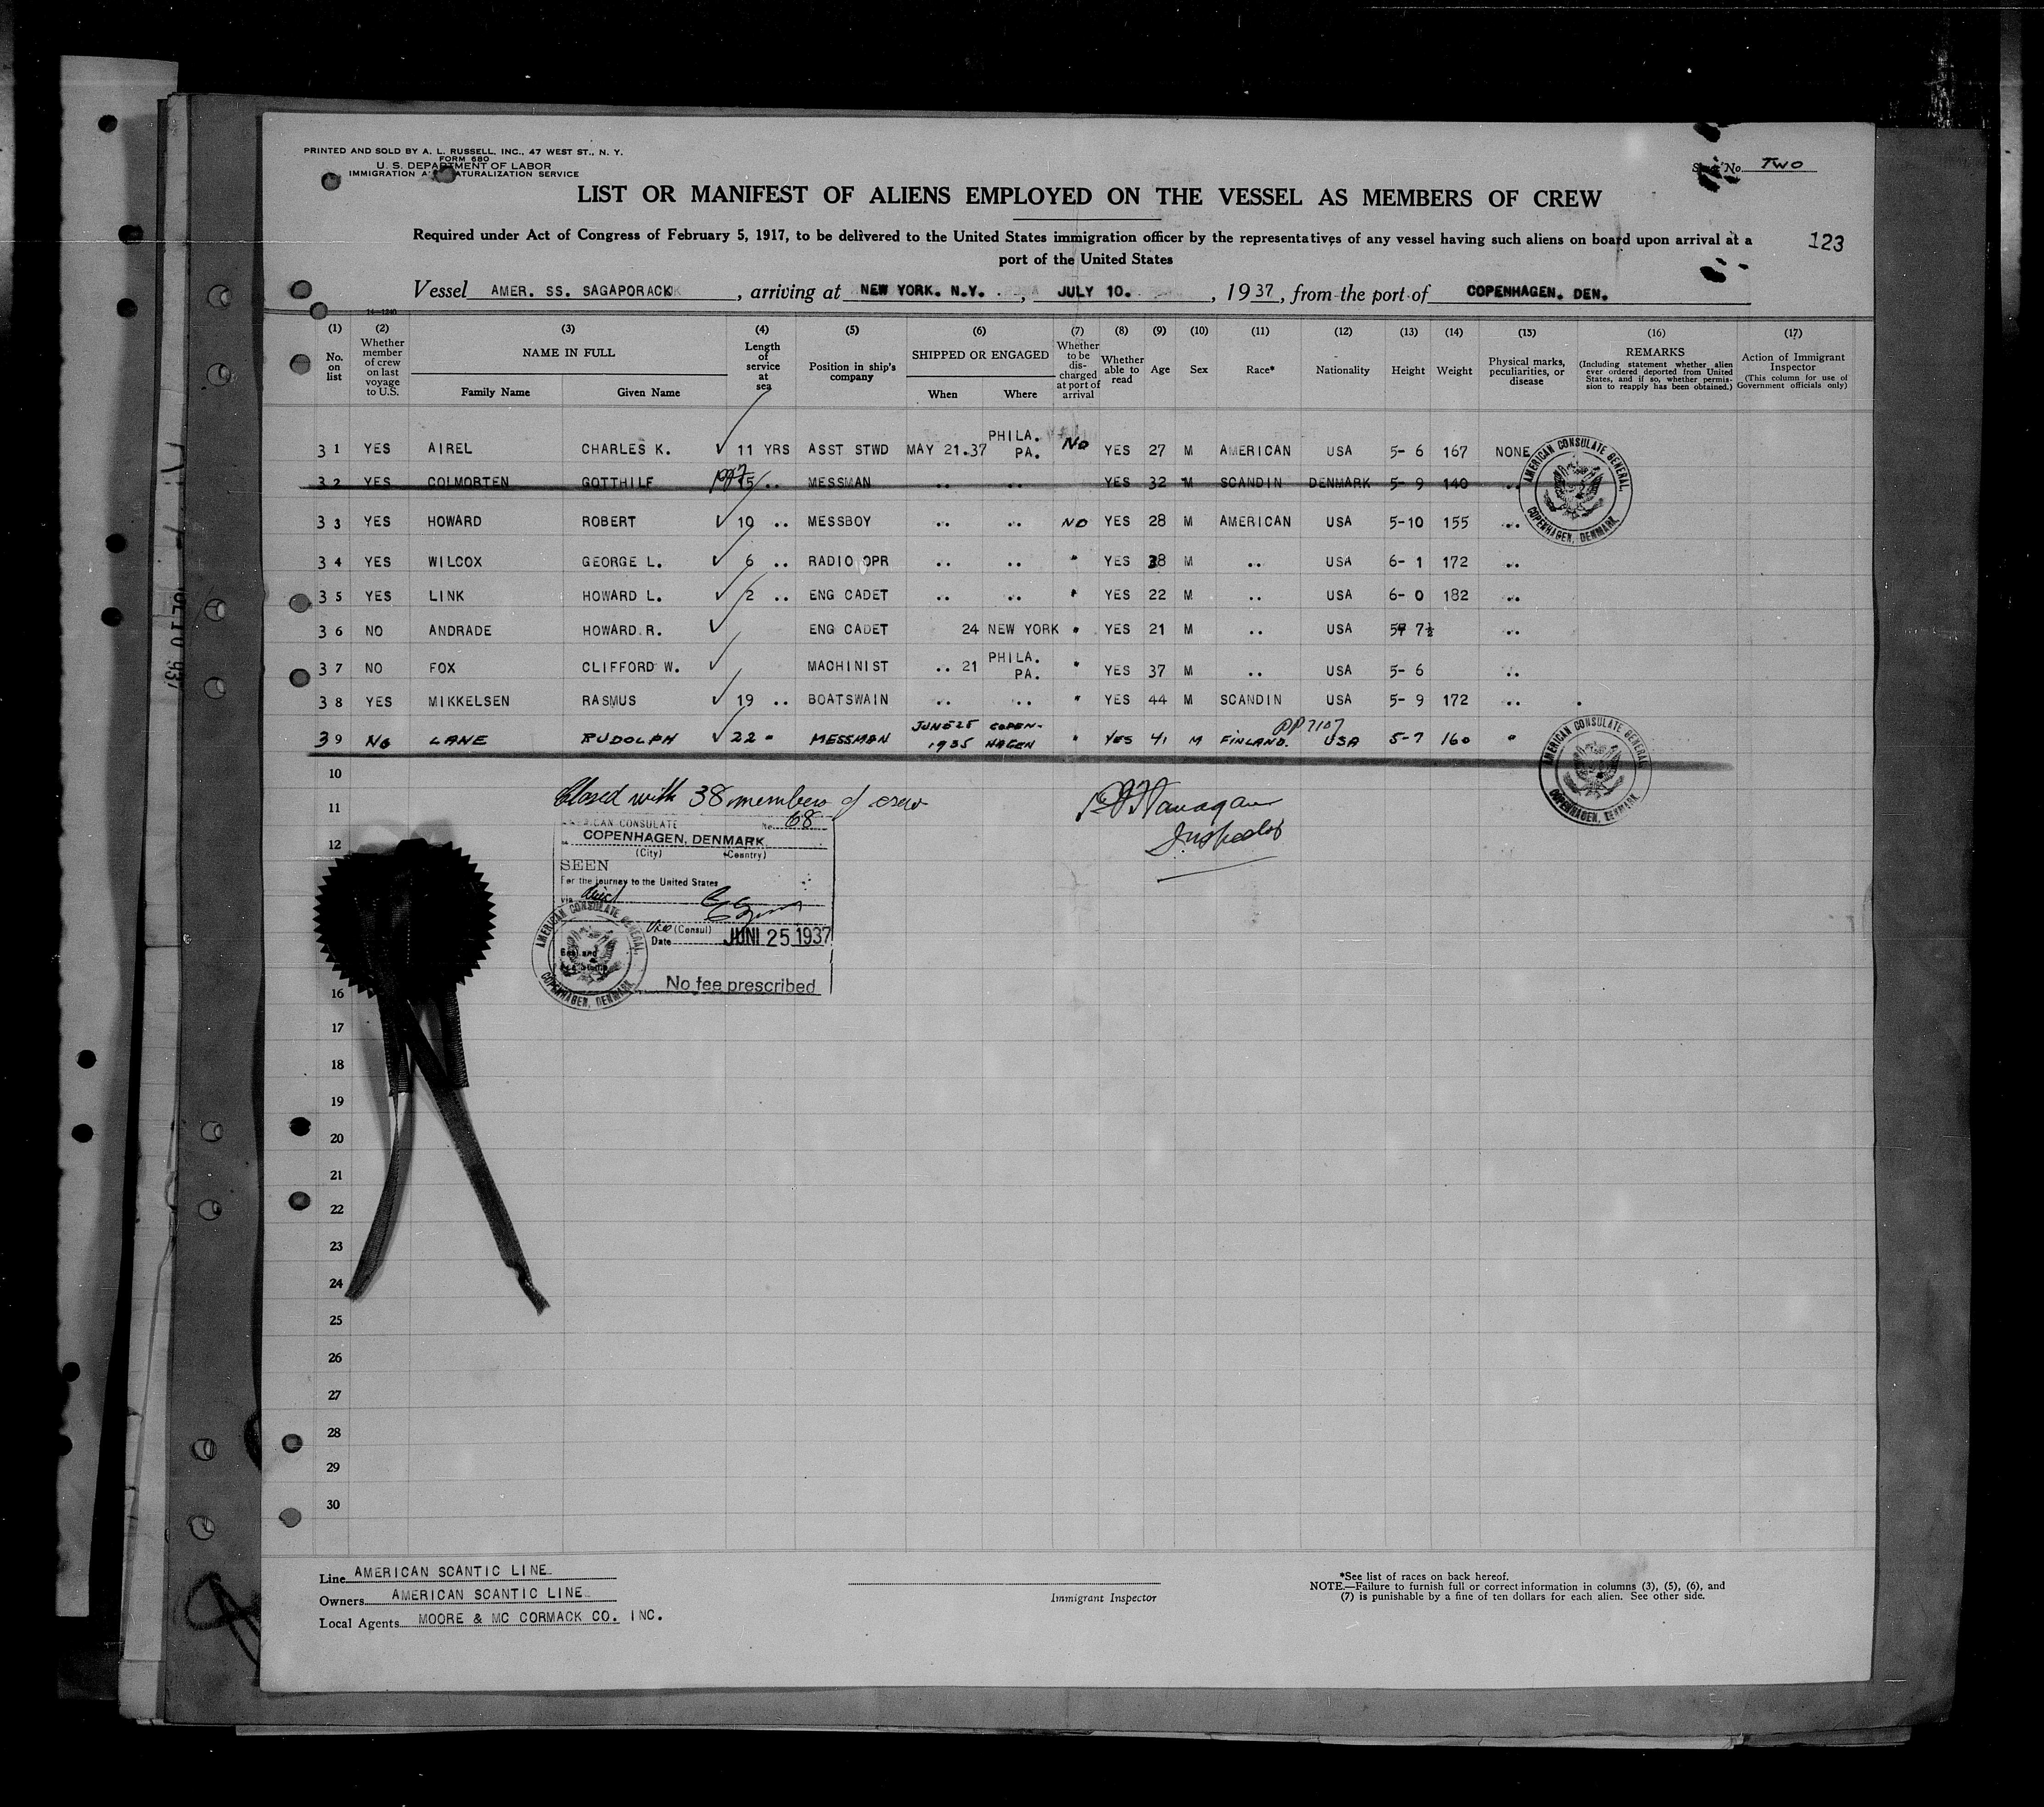 PRINTED AND SOLD BY A. L. RUSSELL, INC., 47 WEST ST., N. Y.
FORM 680
U. S. DEPARTMENT OF LABOR
IMMIGRATION NATURALIZATION SERVICE
No. TWO
LIST OR MANIFEST OF ALIENS EMPLOYED ON THE VESSEL AS MEMBERS OF CREW
Required under Act of Congress of February 5, 1917, to be delivered to the United States immigration officer by the representatives of any vessel having such aliens on board upon arrival at a
port of the United States
123
Vessel AMER. SS. SAGAPORACK, arriving at NEW YORK. N.Y., JULY 10., 1937, from the port of COPENHAGEN. DEN.
14—1240
(1) (2) (3) (4) (5) (6) (7) (8) (9) (10) (11) (12) (13) (14) (15) (16) (17)
No. on list
Whether member of crew on last voyage to U.S.
NAME IN FULL
Family Name Given Name
Length of service at sea
Position in ship's company
SHIPPED OR ENGAGED
When Where
Whether to be discharged at port of arrival
Whether able to read
Age
Sex
Race*
Nationality
Height
Weight
Physical marks, peculiarities, or disease
REMARKS
(Including statement whether alien ever ordered deported from United States, and if so, whether permission to reapply has been obtained.)
Action of Immigrant Inspector
(This column for use of Government officials only)
31 YES AIREL CHARLES K. ✓ 11 YRS ASST STWD MAY 21.37 PHILA. PA. NO YES 27 M AMERICAN USA 5- 6 167 NONE
32 YES COLMORTEN GOTTHILF 15 .. MESSMAN .. .. YES 32 M SCANDIN DENMARK 5- 9 140 ..
33 YES HOWARD ROBERT ✓ 10 .. MESSBOY .. .. NO YES 28 M AMERICAN USA 5-10 155 ..
34 YES WILCOX GEORGE L. ✓ 6 .. RADIO OPR .. .. " YES 38 M .. USA 6- 1 172 ..
35 YES LINK HOWARD L. ✓ 2 .. ENG CADET .. .. " YES 22 M .. USA 6- 0 182 ..
36 NO ANDRADE HOWARD R. ✓ ENG CADET 24 NEW YORK " YES 21 M .. USA 5- 7½ ..
37 NO FOX CLIFFORD W. ✓ MACHINIST .. 21 PHILA. PA. " YES 37 M .. USA 5- 6 ..
38 YES MIKKELSEN RASMUS ✓ 19 .. BOATSWAIN .. .. " YES 44 M SCANDIN USA 5- 9 172 ..
39 NO LANE RUDOLPH ✓ 22 " MESSMAN JUNE 25 1935 COPENHAGEN " YES 41 M FINLAND. PP 7107 USA 5-7 160 "
AMERICAN CONSULATE GENERAL, COPENHAGEN, DENMARK.
AMERICAN CONSULATE GENERAL, COPENHAGEN, DENMARK.
10
11
12
16
17
18
19
20
21
22
23
24
25
26
27
28
29
30
Closed with 38 members of crew
Inspector
AMERICAN CONSULATE No. 68
COPENHAGEN, DENMARK
(City) (Country)
SEEN
For the journey to the United States
via direct
Vice (Consul)
Date JUNI 25 1937
No fee prescribed
AMERICAN CONSULATE GENERAL, COPENHAGEN, DENMARK.
Line AMERICAN SCANTIC LINE
Owners AMERICAN SCANTIC LINE
Local Agents MOORE & MC CORMACK CO. INC.
Immigrant Inspector
*See list of races on back hereof.
NOTE.—Failure to furnish full or correct information in columns (3), (5), (6), and
(7) is punishable by a fine of ten dollars for each alien. See other side.